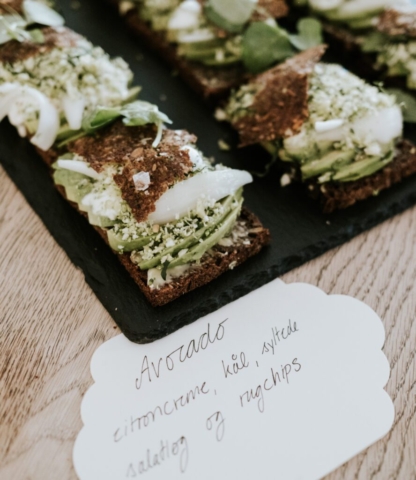 Avocado
citroncreme, kål, syltede
salatløg og rugchips